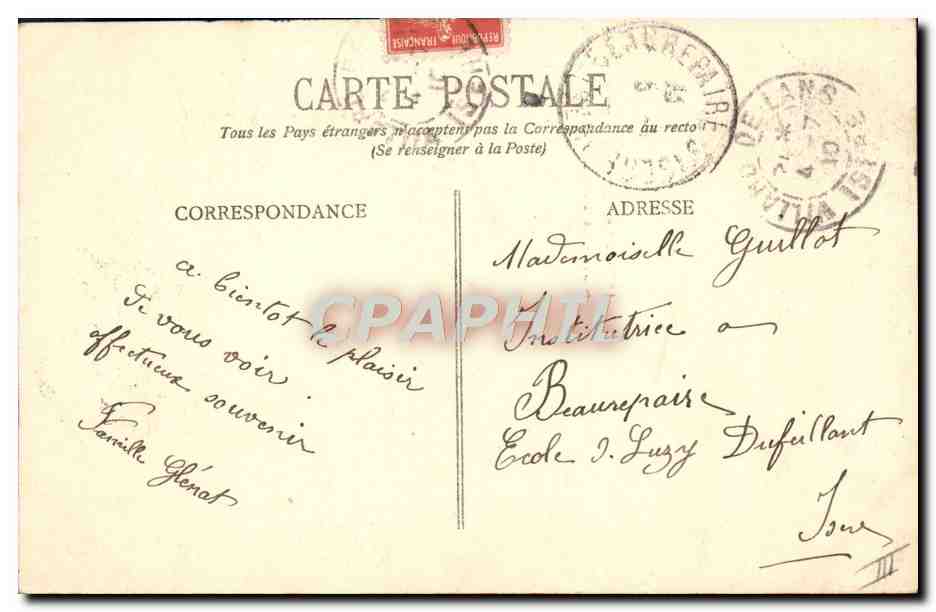 REPUBLIQUE FRANÇAISE
CARTE POSTALE
Tous les Pays étrangers n'acceptent pas la Correspondance au recto
(Se renseigner à la Poste)
BEAUREPAIRE
VILLARD DE LANS
CORRESPONDANCE
a bientot le plaisir
de vous voir.
affectueux souvenir
Famille Glénat
ADRESSE
Mademoiselle Guillot
Institutrice a
Beaurepaire
Ecole Luzy Dufeillant
Isère
III
CPAPHIL